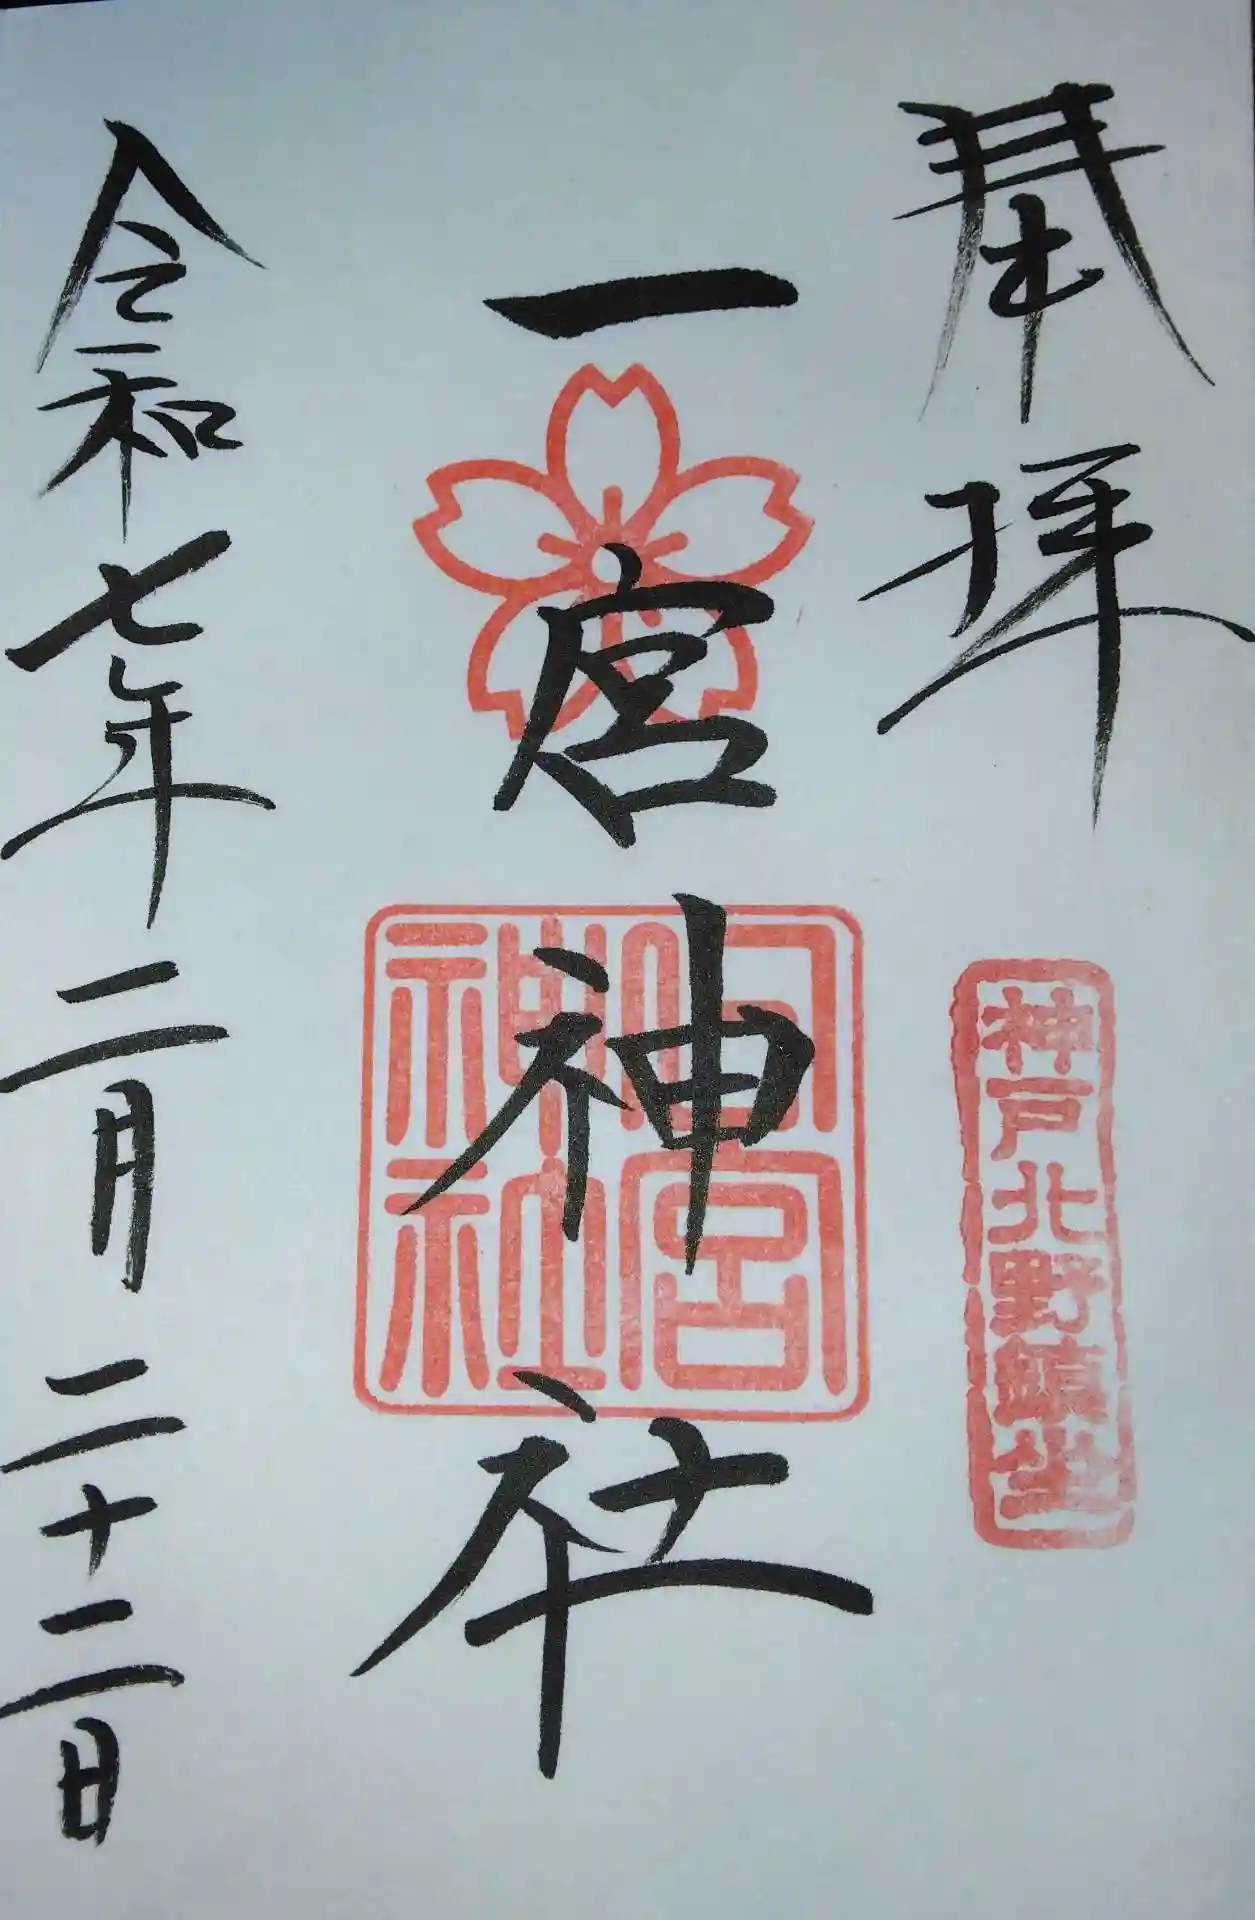 奉拝
神戸北野鎮坐
一宮神社
宮神社
令和七年二月二十二日